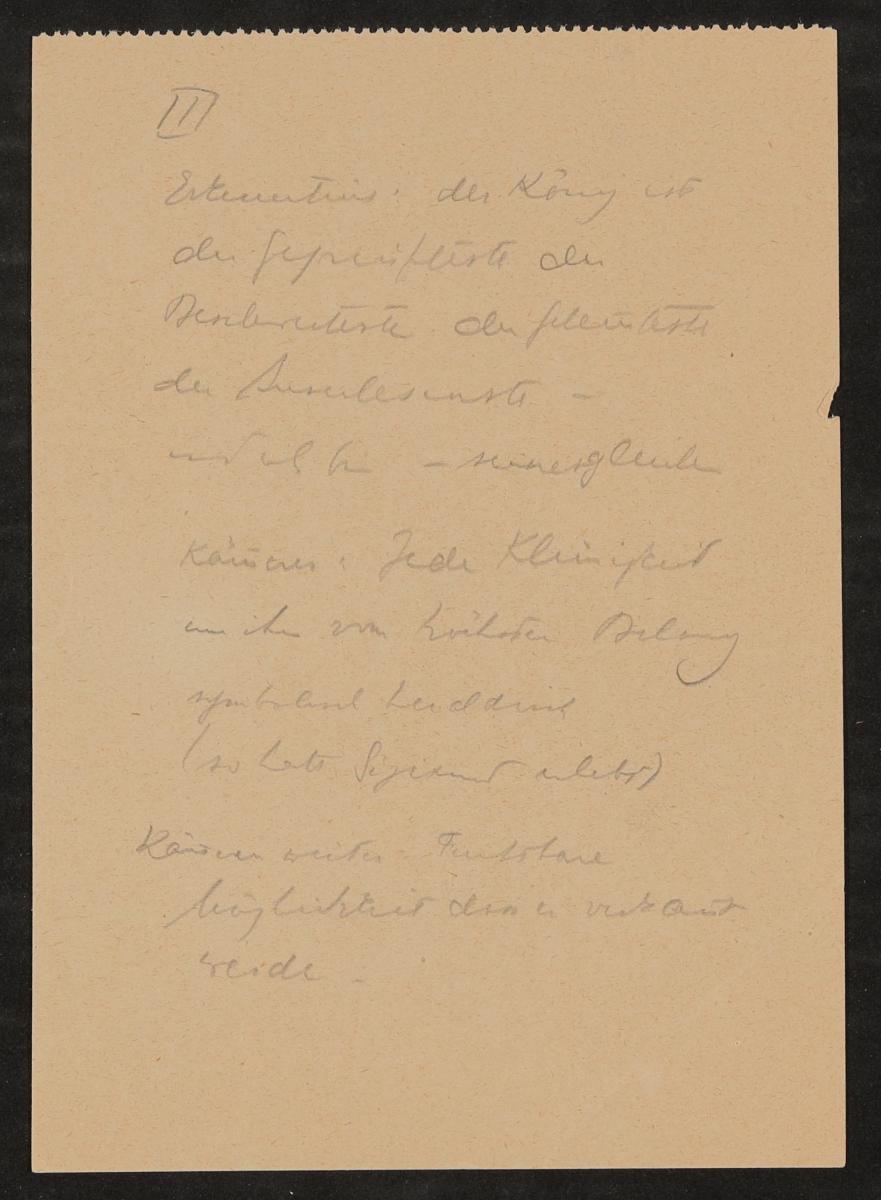 II
Erkenntnis: der König ist
der Geprüfteste der
der
der Auserlesenste –
und ich bin – seinesgleichen
Kämmerer: Jede Kleinigkeit
um ihn vom höchsten Belang
symbolisch
(so hatte Sigismund erlebt)
Kämmerer weiter Furchtbare
Möglichkeit dass er verkannt
werde –